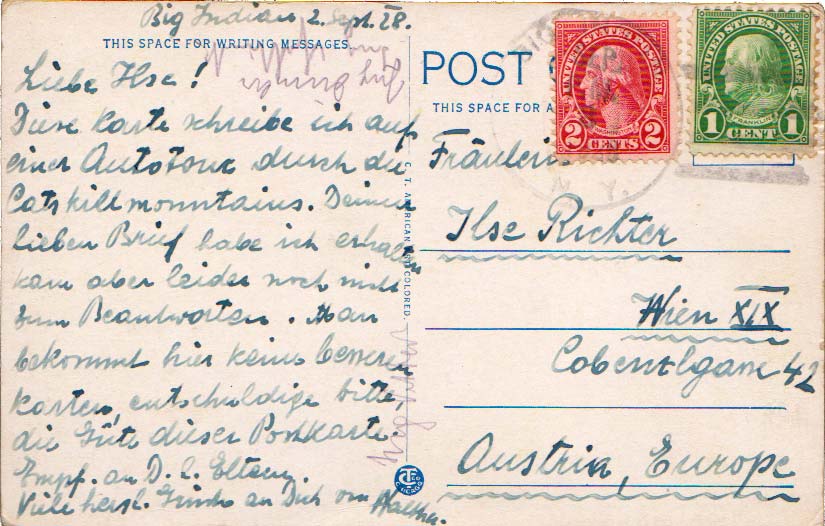 Big Indian 2. Sept. 28.
THIS SPACE FOR WRITING MESSAGES.
Liebe Ilse!
Diese Karte schreibe ich auf
einer Autotour durch die
Catskillmountains. Deinen
lieben Brief habe ich erhalten
kam aber leider noch nicht
zum Beantworten. Man
bekommt hier keine besseren
Karten, entschuldige bitte,
die Güte dieser Postkarte.
Empf. an D. l. Eltern.
Viele herzl. Grüße an Dich von Walther.
C. T. AMERICAN ART COLORED.
POST
THIS SPACE FOR A
UNITED STATES POSTAGE
WASHINGTON
2 CENTS 2
UNITED STATES POSTAGE
FRANKLIN
1 CENT 1
N. Y.
Fräulein
Ilse Richter
Wien XIX
Cobenzlgasse 42
Austria, Europe